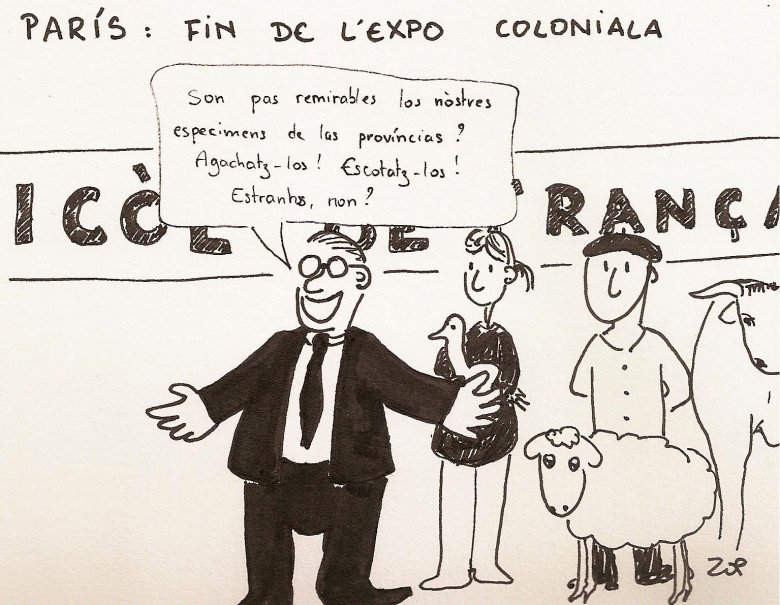 PARÍS : FIN DE L'EXPO COLONIALA
Son pas remirables los nòstres
especimens de las províncias ?
Agachatz-los ! Escotatz-los !
Estranhs, non ?
ICÒL DE FRANÇA
ZOP